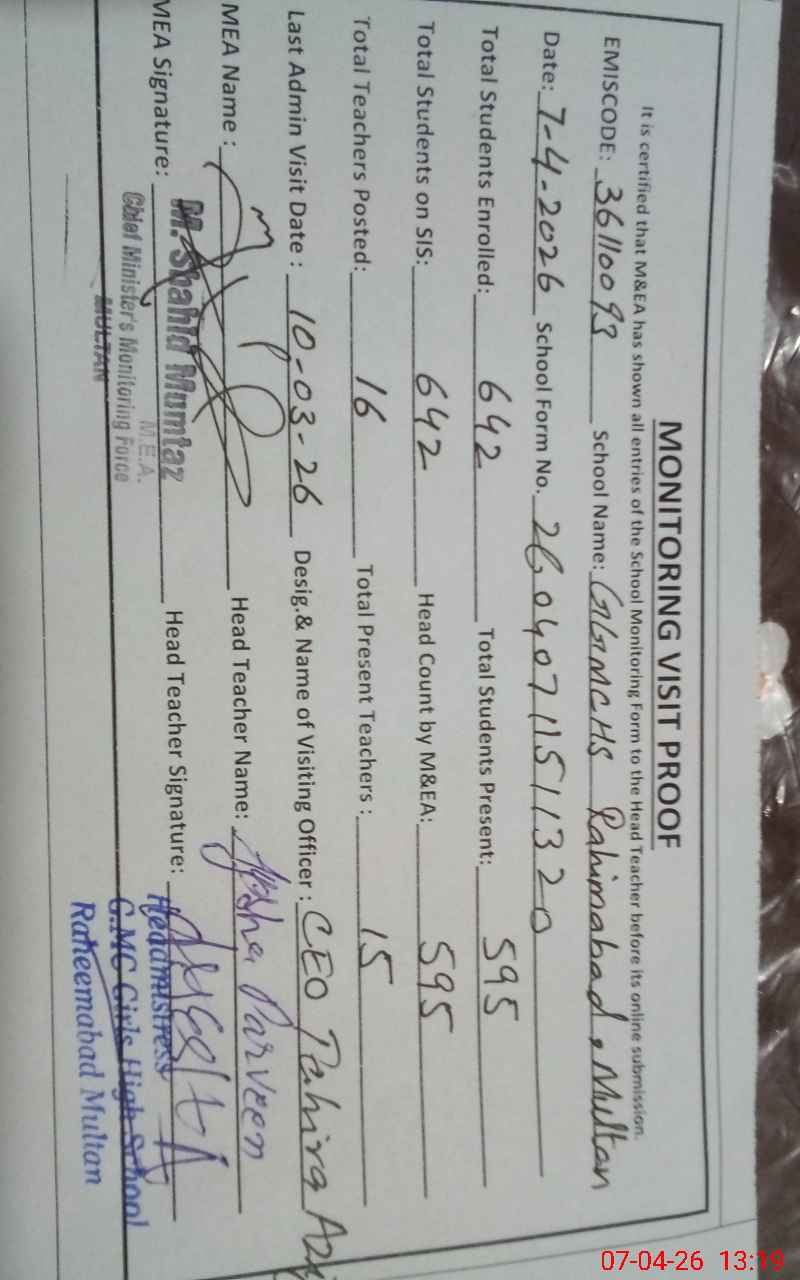 MONITORING VISIT PROOF
It is certified that M&EA has shown all entries of the School Monitoring Form to the Head Teacher before its online submission.
EMISCODE: 36110093 School Name: GGMCHS Rahimabad, Multan
Date: 7-4-2026 School Form No. 26040711511320
Total Students Enrolled: 642 Total Students Present: 595
Total Students on SIS: 642 Head Count by M&EA: 595
Total Teachers Posted: 16 Total Present Teachers : 15
Last Admin Visit Date : 10-03-26 Desig.& Name of Visiting Officer : CEO Tahira
MEA Name : Head Teacher Name: Aysha Parveen
MEA Signature: Head Teacher Signature:
M. Shahid Mumtaz
M.E.A.
Chief Minister's Monitoring Force
MULTAN
Headmistress
G.MC Girls High School
Raheemabad Multan
07-04-26 13:19